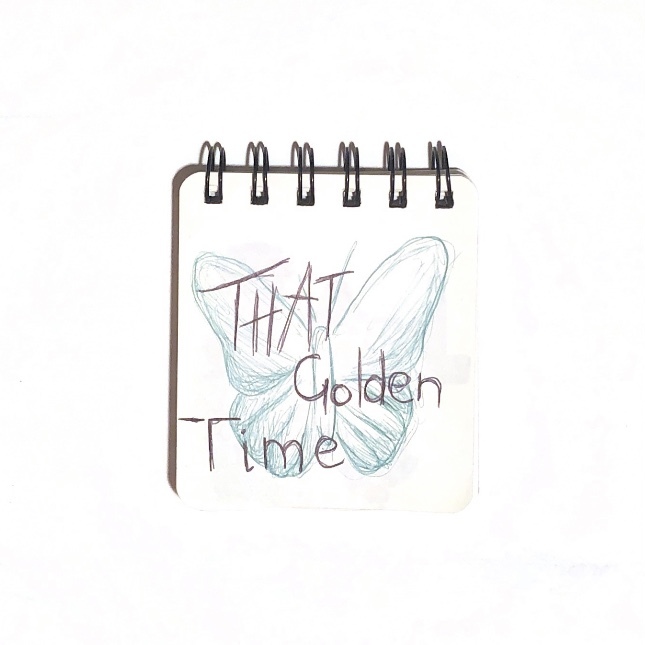 THAT
Golden
Time